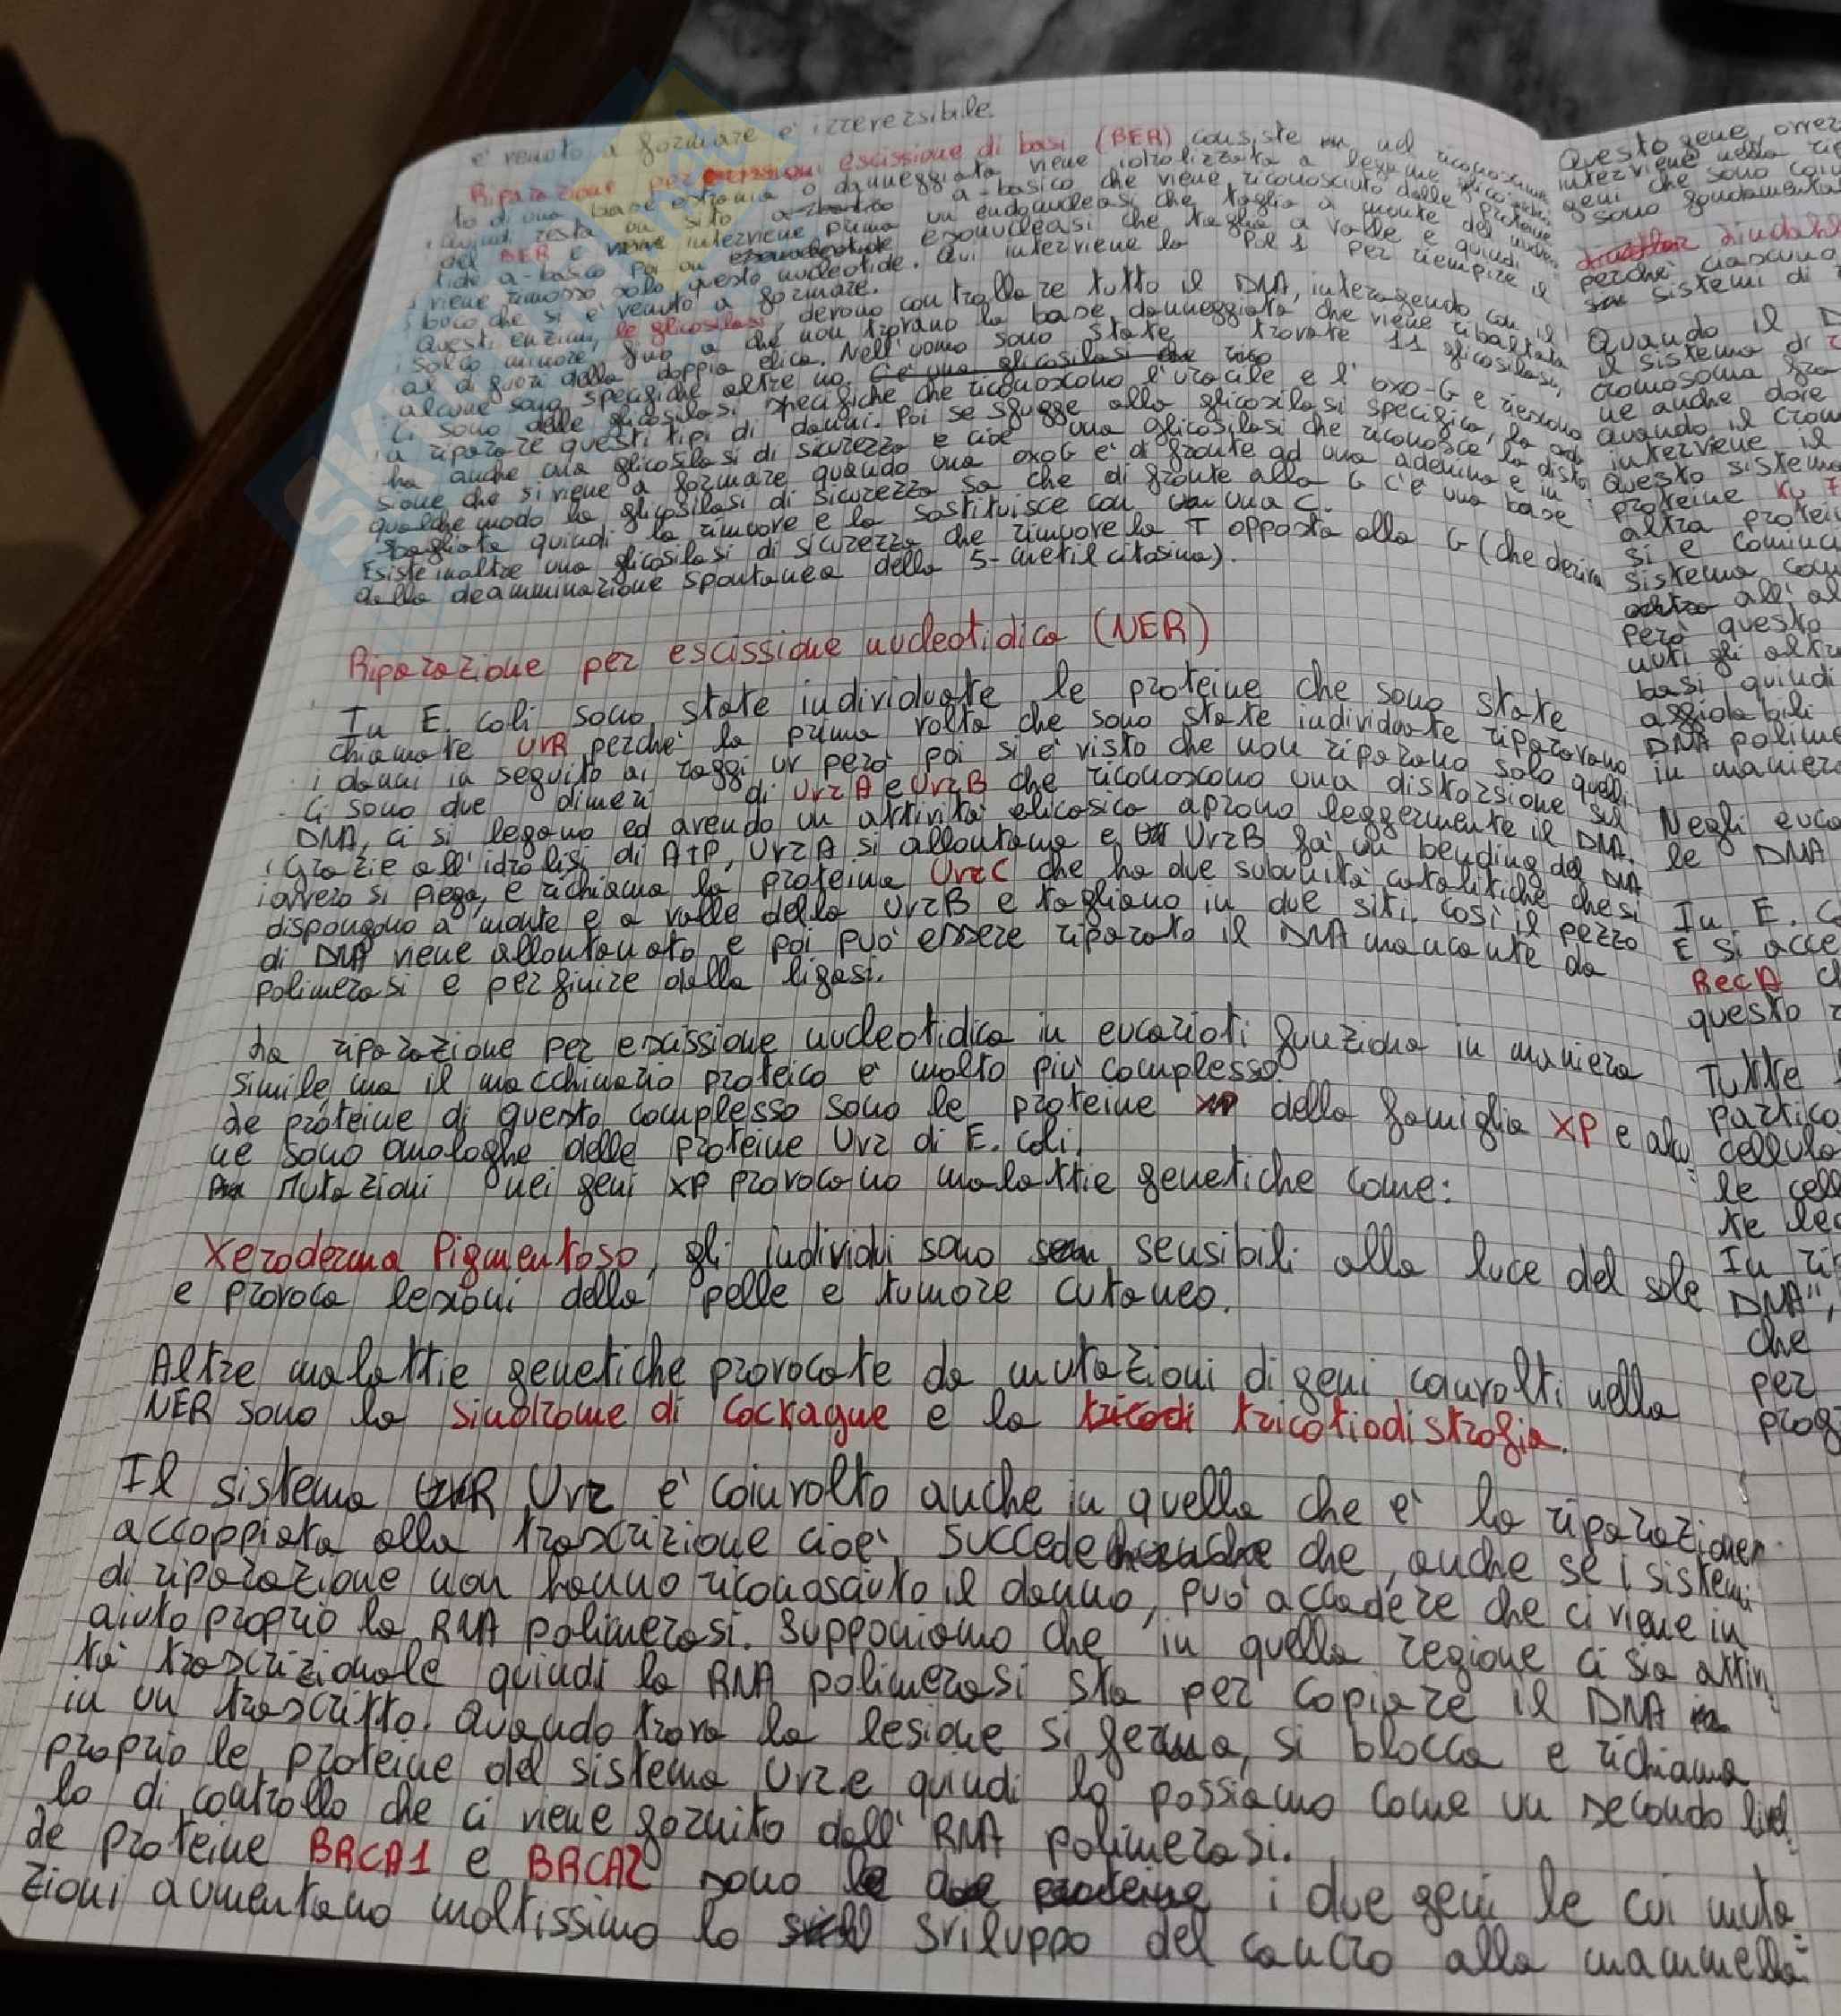 è venuto a formare è irreversibile.
Riparazione per escissione di basi (BER) consiste nel riconoscimen
to di una base estranea o danneggiata viene idrolizzata a legame glicosidico
quindi resta un sito a-basico che viene riconosciuto dalle proteine
del BER e interviene prima un endonucleasi che taglia a monte del nucleo
tide a-basico poi un esonucleasi che taglia a valle e quindi
viene rimosso solo questo nucleotide. Qui interviene la Pol 1 per riempire il
buco che si è venuto a formare.
Questi enzimi, le glicosilasi, devono controllare tutto il DNA, interagendo con il
solco minore, fino a che non trovano la base danneggiata che viene ribaltata
al di fuori della doppia elica. Nell'uomo sono state trovate 11 glicosilasi,
alcune sono specifiche altre no. C'è una glicosilasi che rico
Ci sono delle glicosilasi specifiche che riconoscono l'uracile e l'oxo-G e riescono
a riparare questi tipi di danni. Poi se sfugge alla glicosilasi specifica, la
ha anche una glicosilasi di sicurezza e cioè una glicosilasi che riconosce la disto
sione che si viene a formare quando una oxoG è di fronte ad una adenina e in
qualche modo la glicosilasi di sicurezza sa che di fronte alla G c'è una base
sbagliata quindi la rimuove e la sostituisce con una C.
Esiste inoltre una glicosilasi di sicurezza che rimuove la T opposta alla G (che deriva
dalla deamminazione spontanea della 5-metilcitosina).
Riparazione per escissione nucleotidica (NER)
In E. coli sono state individuate le proteine che sono state
chiamate UVR perchè la prima volta che sono state individuate riparavano
i danni in seguito ai raggi uv però poi si è visto che non riparano solo quelli.
Ci sono due dimeri di UvrA e UvrB che riconoscono una distorsione sul
DNA, ci si legano ed avendo un attività elicasica aprono leggermente il DNA.
Grazie all'idrolisi di ATP, UvrA si allontana e UvrB fà un bending del DNA
ovvero si piega, e richiama la proteina UvrC che ha due subunità catalitiche che si
dispongono a monte e a valle della UvrB e tagliano in due siti. Così il pezzo
di DNA viene allontanato e poi può essere riparato il DNA mancante da
polimerasi e per finire dalla ligasi.
La riparazione per escissione nucleotidica in eucarioti funziona in maniera
simile ma il macchinario proteico è molto più complesso.
Le proteine di questo complesso sono le proteine XP della famiglia XP e alcu
ne sono omologhe delle proteine Uvr di E. coli.
Mutazioni nei geni XP provocano malattie genetiche come:
Xeroderma Pigmentoso, gli individui sono sensibili alla luce del sole
e provoca lesioni della pelle e tumore cutaneo.
Altre malattie genetiche provocate da mutazioni di geni coinvolti nella
NER sono la sindrome di Cockayne e la tricodi tricotiodistrofia.
Il sistema UVR Uvr è coinvolto anche in quella che è la riparazione
accoppiata alla trascrizione cioè, succede che, anche se i sistemi
di riparazione non hanno riconosciuto il danno, può accadere che ci viene in
aiuto proprio la RNA polimerasi. Supponiamo che in quella regione ci sia attivi
tà trascrizionale quindi la RNA polimerasi sta per copiare il DNA
in un trascritto. Quando trova la lesione si ferma, si blocca e richiama
proprio le proteine del sistema Uvr e quindi lo possiamo come un secondo livel
lo di controllo che ci viene fornito dall'RNA polimerasi.
Le proteine BRCA1 e BRCA2 sono le due proteine i due geni le cui muta
zioni aumentano moltissimo lo sviluppo del cancro alla mammella.
Questo gene, ovver
interviene nella
geni che sono
sono fondamenta
perchè ciascuno
sistemi di
Quando il D
il sistema di
cromosoma
ne anche dove
quando il crom
interviene il
Questo sistema
proteine Ku 7
altra protei
si e cominc
sistema
all'al
Però questo
basi quindi
DNA polime
in manier
Negli euca
le DNA
In E. C
E si acce
RecA
questo
Tutte
partico
cellula
le cell
In
DNA",
che
per
prog